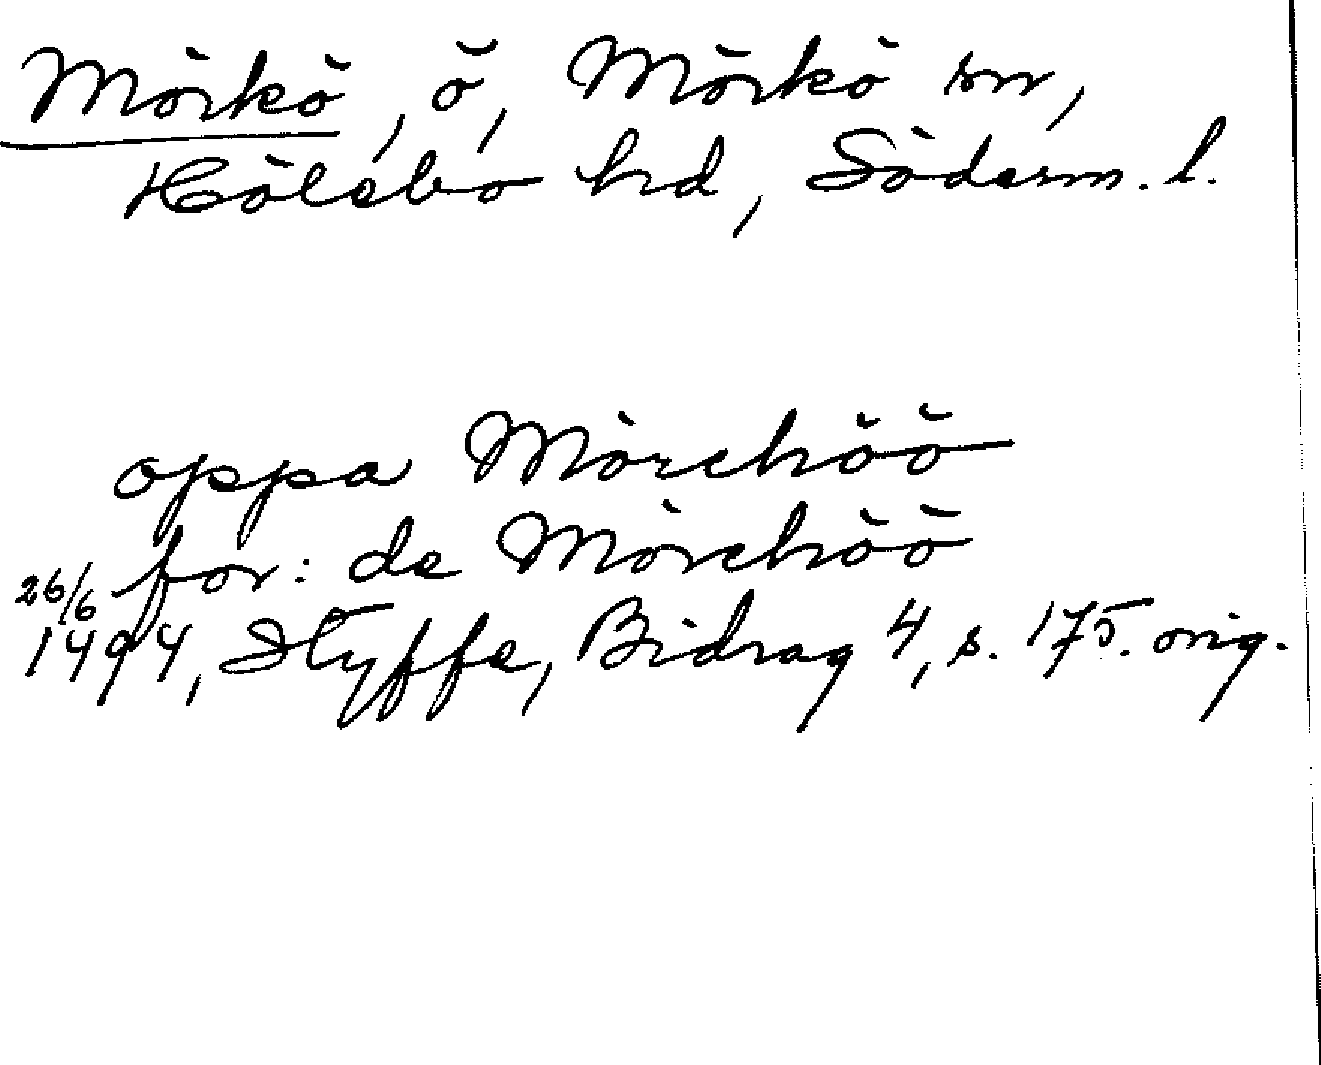 Mörkö, ö, Mörkö sn,
Hölebo hd, Söderm. l.
oppa Mörchöö
for: de Mörchöö
26/6
1494, Styffe, Bidrag 4, s. 175. orig.